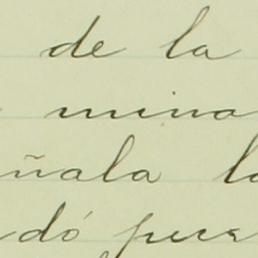 de la
mina
ñala la
dó pues